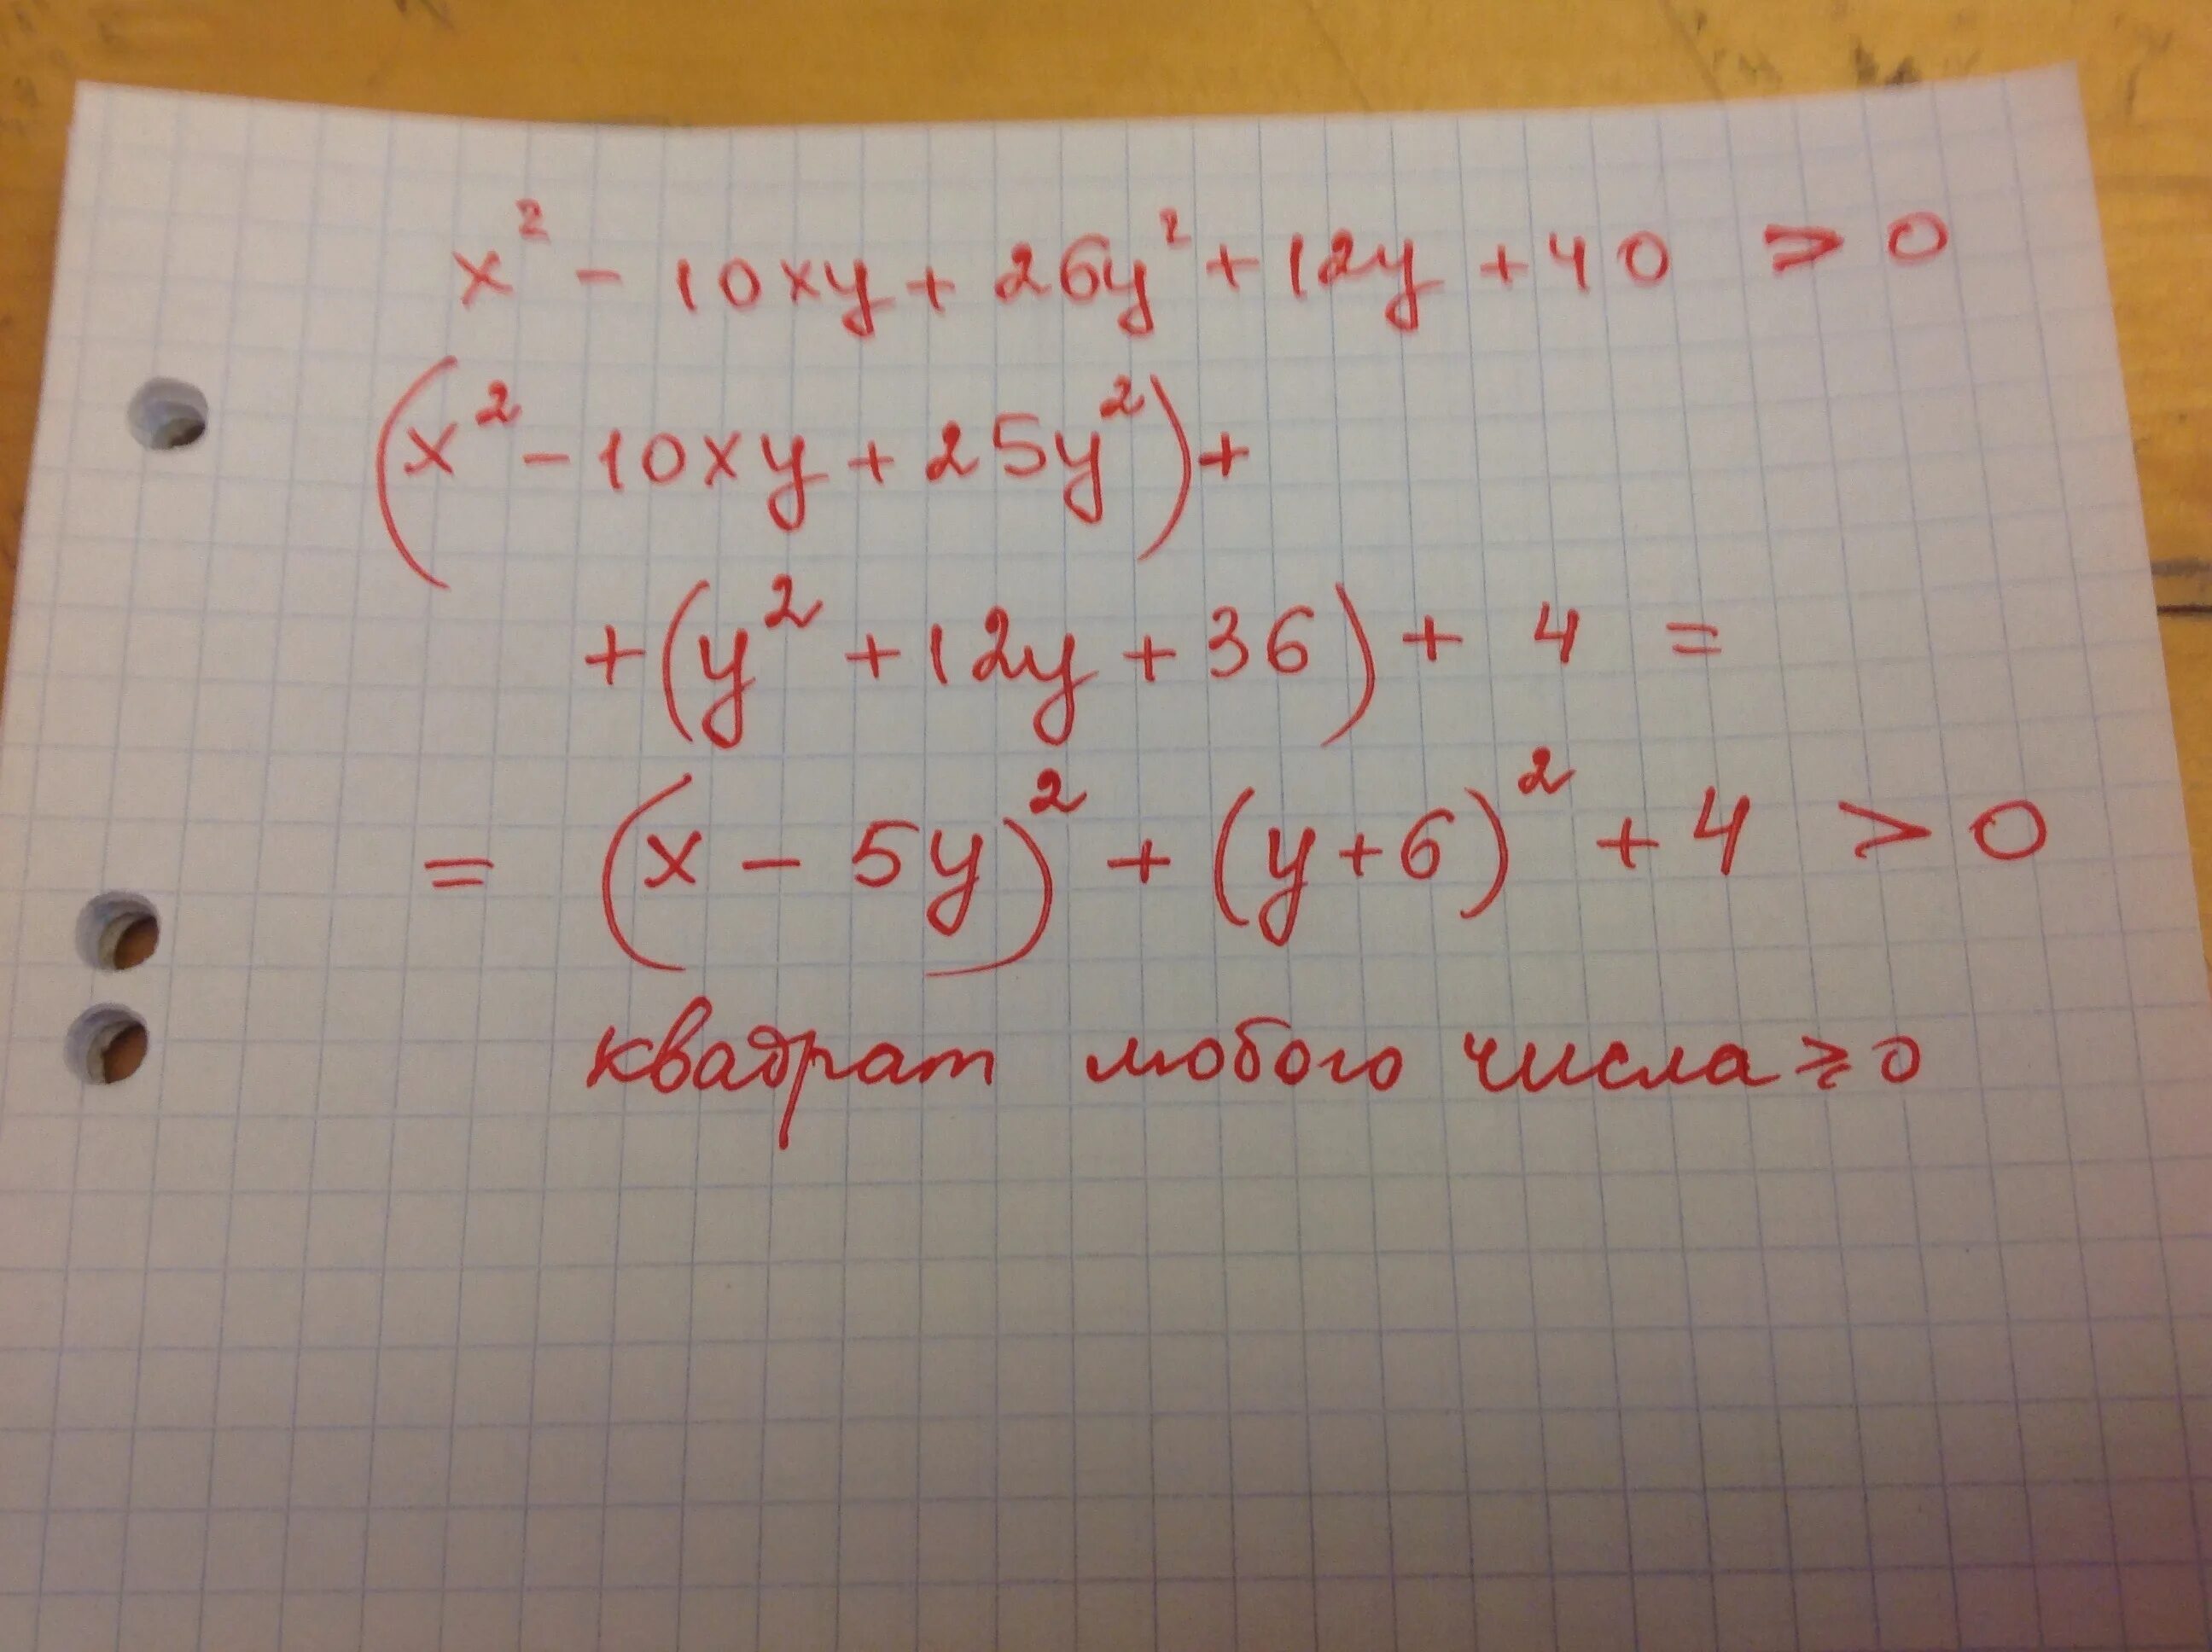 x² - 10xy + 26y² + 12y + 40 > 0
(x² - 10xy + 25y²) +
+ (y² + 12y + 36) + 4 =
= (x - 5y)² + (y + 6)² + 4 > 0
квадрат любого числа ⩾ 0